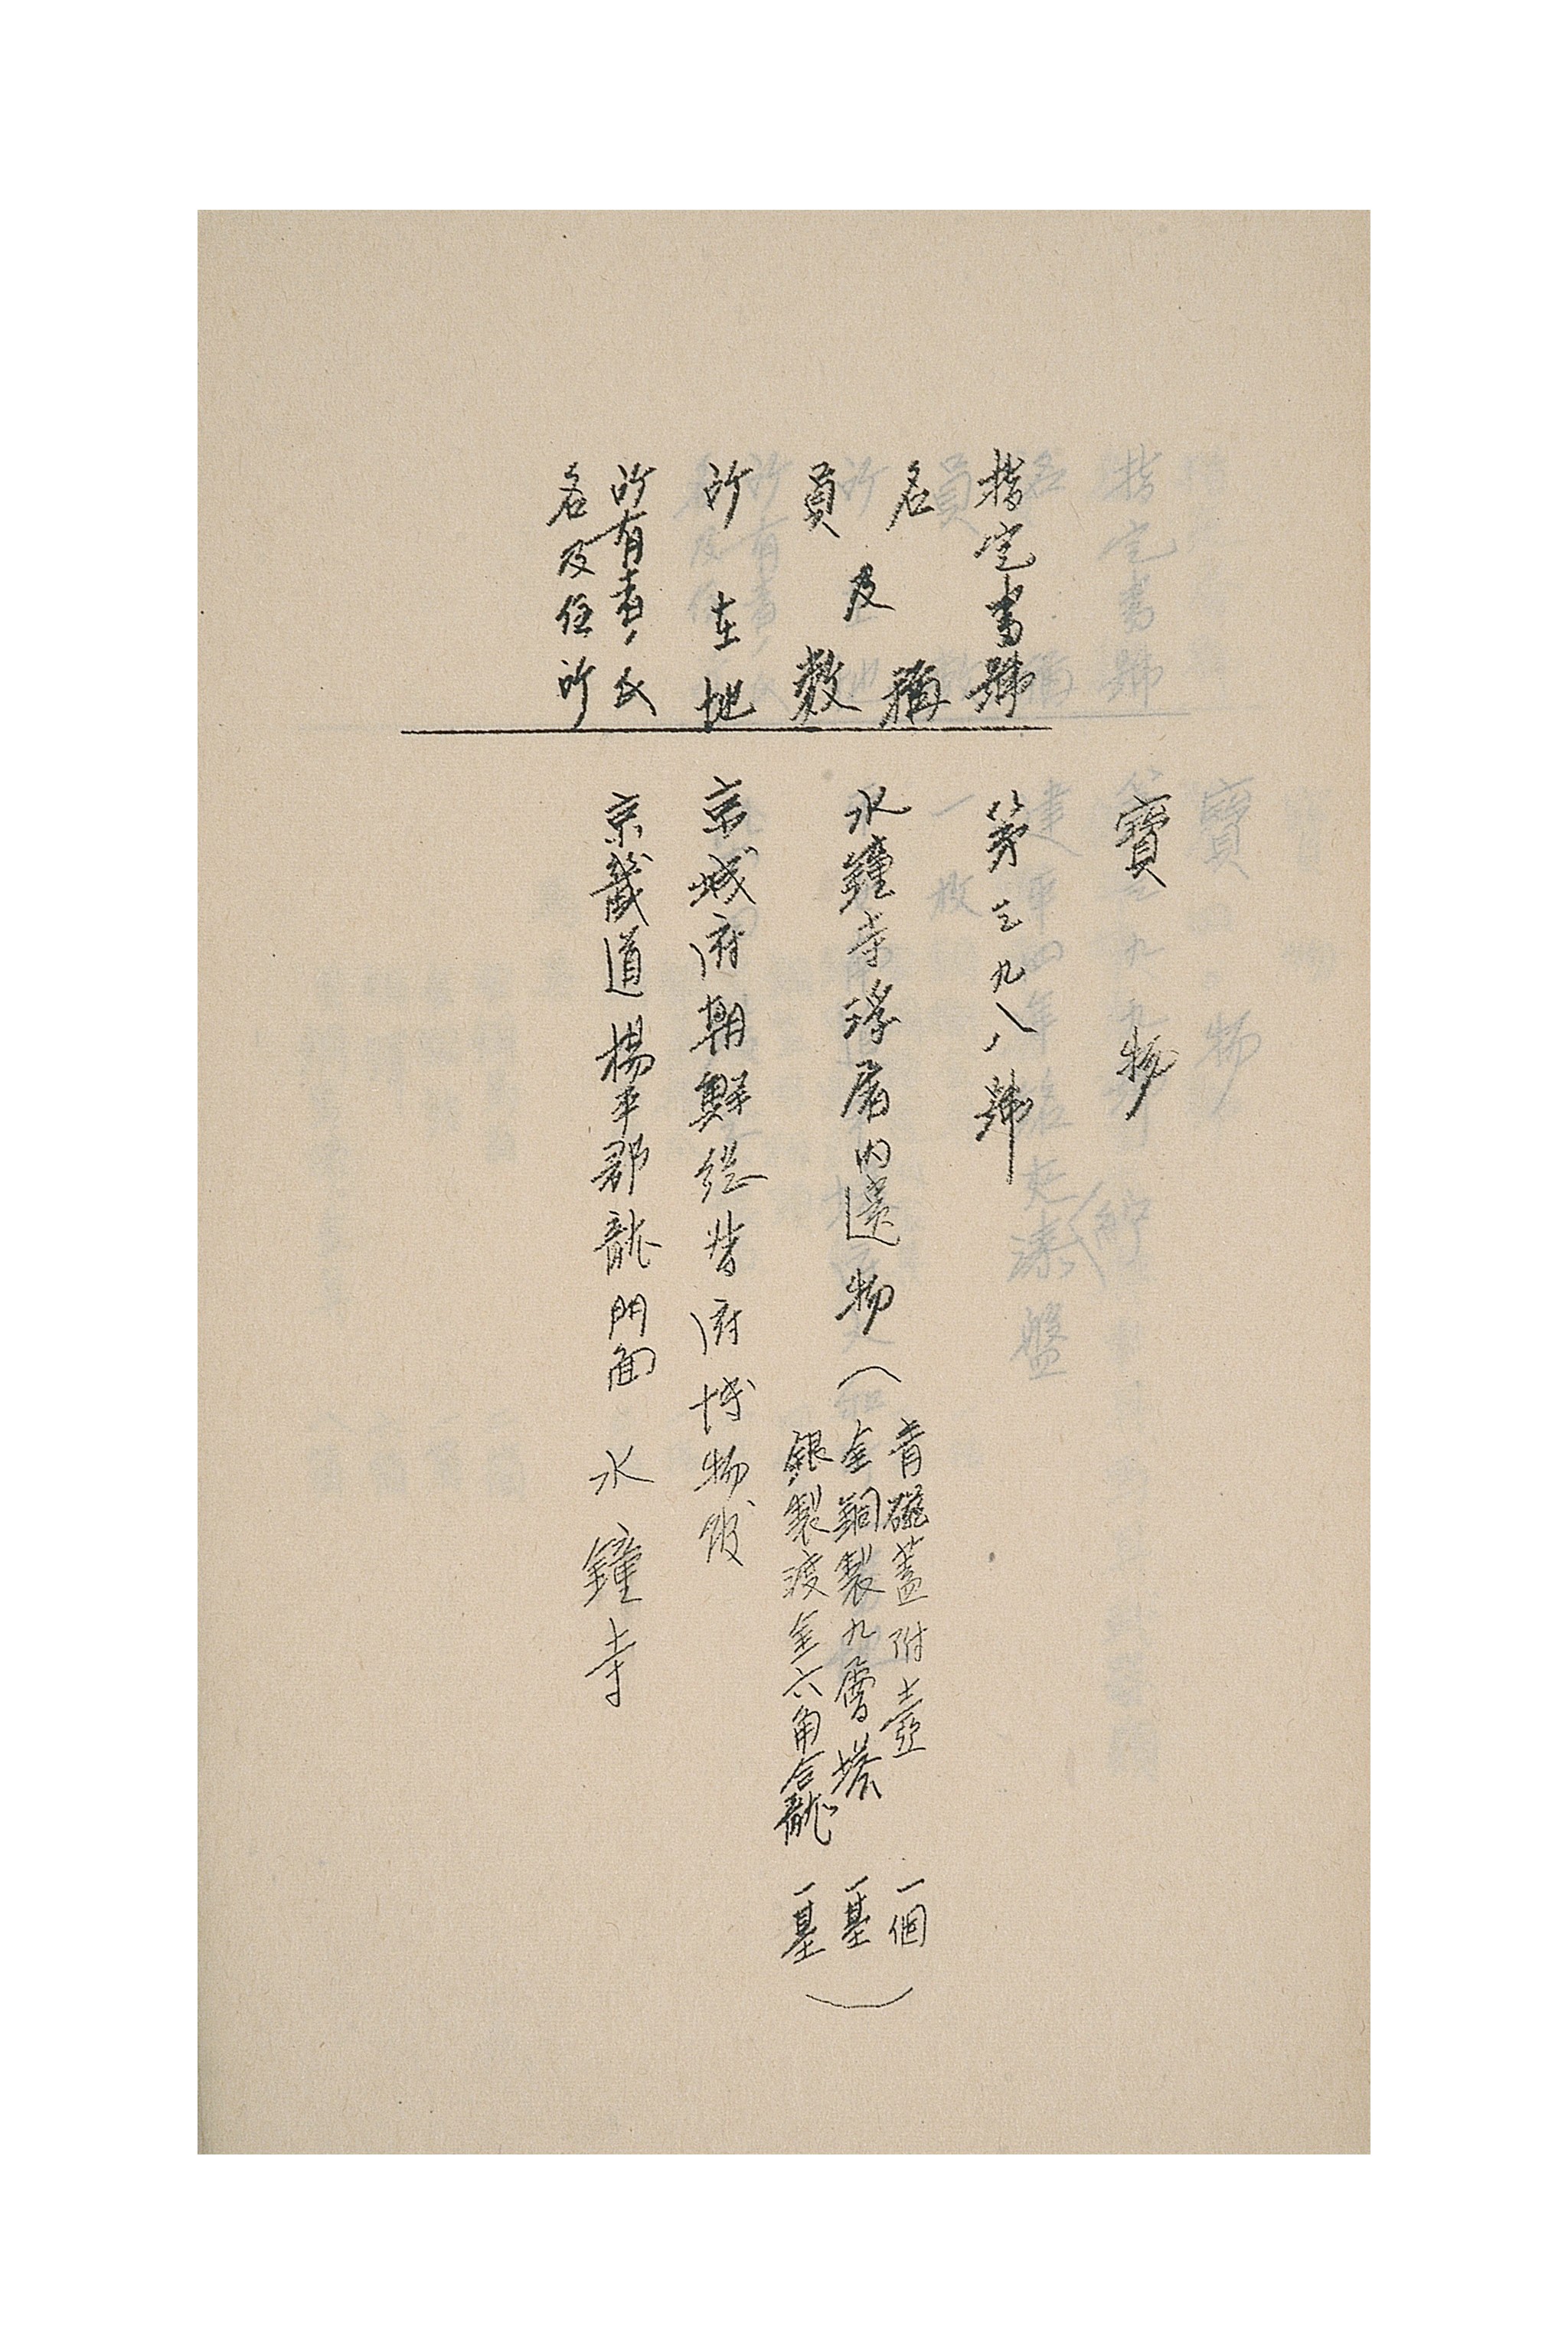 寶物
指定番號
第三九八號
名稱
及
員數
水鐘寺浮屠内遺物(
青磁蓋附壺 一個
金銅製九層塔 一基
銀製渡金六角合龕 一基
)
所在地
京城府朝鮮総督府博物館
所有者ノ氏
名及住所
京畿道楊平郡龍門面 水鐘寺